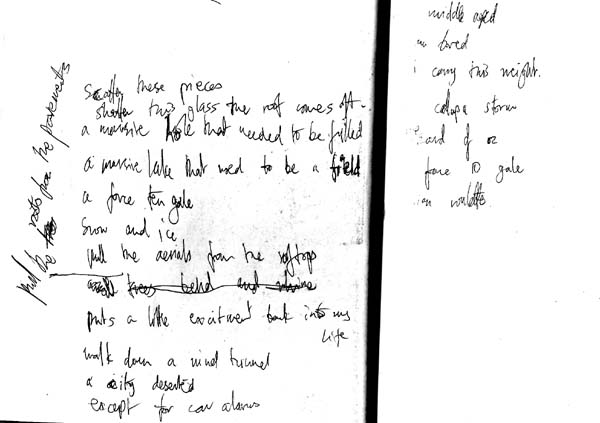 scatter these pieces
shatter this glass the roof comes off
a massive hole that needed to be filled
a massive lake that used to be a field
a force ten gale
snow and ice
pull the aerials from the rooftops
trees bend and
puts a little excitment back into my
life
walk down a wind tunnel
a city deserted
except for car alarms
pull the roots from the pavements
middle aged
bored
i carry this weight.
storm
force 10 gale